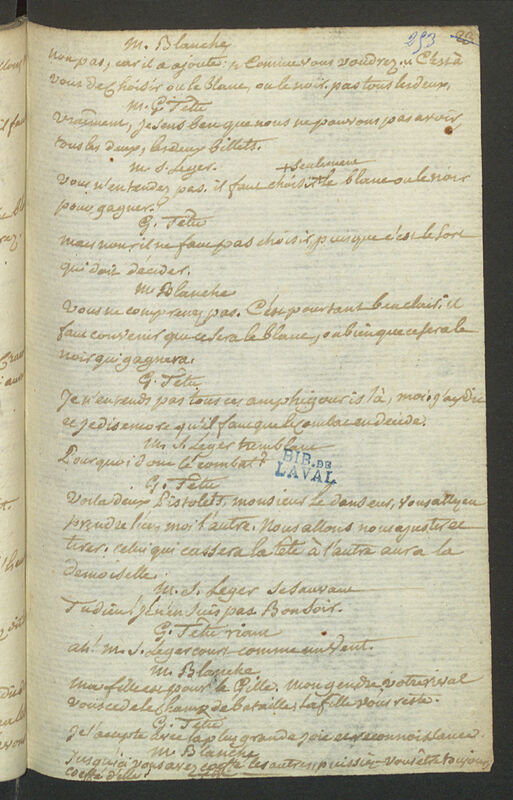 253
M. Blanche
non pas, car il a ajouté : „ Comme vous voudrez. „ C'est à
vous de choisir ou le blanc, ou le noir, pas tous les deux.
M. G. Tétu
vraiment, je sens ben que nous ne pouvons pas avoir
tous les deux, les deux billets.
M. S. Leger.
+ seulement
vous n'entendez pas. il faut choisir + le blanc ou le noir
pour gagner.
G. Tétu
mais non il ne faut pas choisir, puisque c'est le sort
qui doit décider.
M. Blanche
vous ne comprenez pas. C'est pourtant ben clair. il
faut convenir que ce sera le blanc, ou bien que ce sera le
noir qui gagnera.
G. Tétu
Je n'entends pas tous ces amphigouris là, moi. j'ay dit
et je dis encore qu'il faut que le combat en décide.
M. S. Leger tremblant
Pourquoi donc le combat ?
BIB. DE
LAVAL
G. Tétu
Voila deux Pistolets, monsieur le danseur, vous allez en
prendre l'un, moi l'autre. Nous allons nous ajuster et
tirer. celui qui cassera la tête à l'autre aura la
demoiselle.
M. S. Leger se sauvant
Tudieu ! je n'en suis pas. Bonsoir.
G. Tétu riant
ah ! M. S. Leger court comme un vent.
M. Blanche
ma fille est pour le Gille. Mon gendre, votre rival
vous cede le champ de bataille, la fille vous reste.
G. Tétu
Je l'accepte avec la plus grande joie et reconnoissance.
M. Blanche
Jusqu'ici vous avez coeffé les autres, puissiez-vous être toujours
coeffé d'elle.